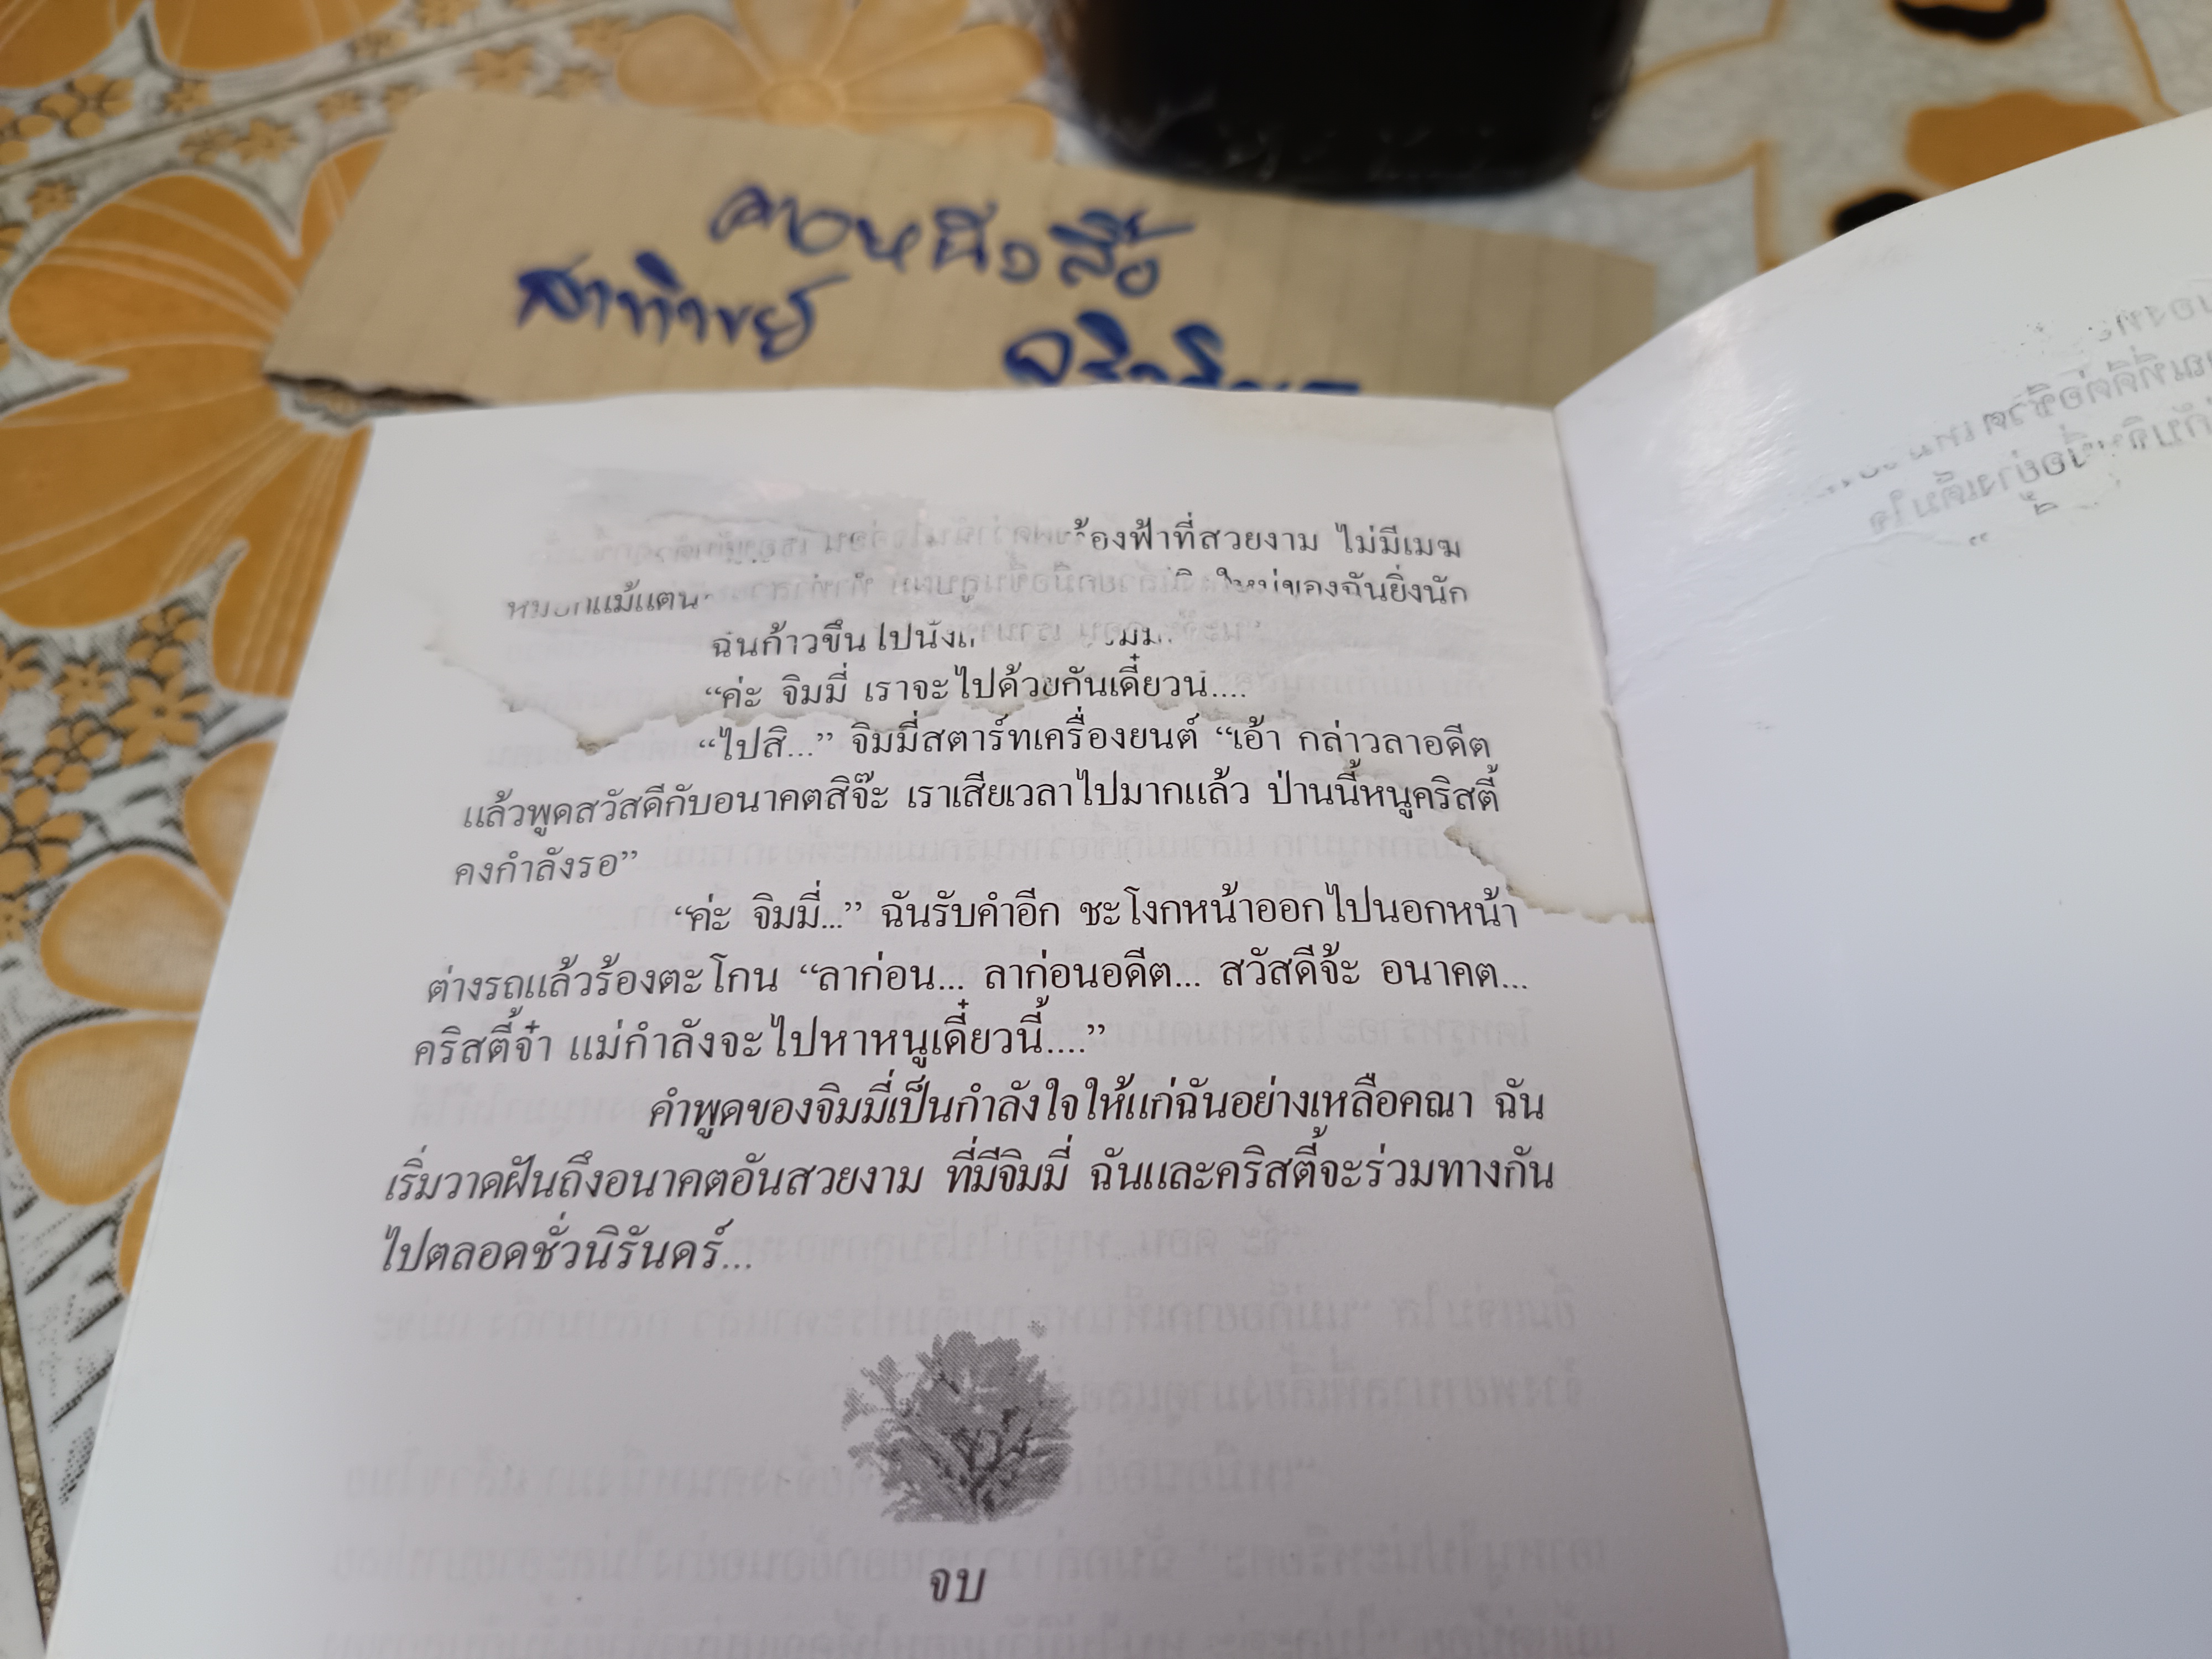 สาทิพย์
้องฟ้าที่สวยงาม ไม่มีเมฆ
แม้แต่น ของฉันยิ่งนัก
ฉันก้าวขึ้นไปนั่ง
“ค่ะ จิมมี่ เราจะไปด้วยกันเดี๋ยวน....
“ไปสิ...” จิมมี่สตาร์ทเครื่องยนต์ “เอ้า กล่าวลาอดีต
แล้วพูดสวัสดีกับอนาคตสิจ๊ะ เราเสียเวลาไปมากแล้ว ป่านนี้หนูคริสตี้
คงกำลังรอ”
“ค่ะ จิมมี่...” ฉันรับคำอีก ชะโงกหน้าออกไปนอกหน้า
ต่างรถแล้วร้องตะโกน “ลาก่อน... ลาก่อนอดีต... สวัสดีจ้ะ อนาคต...
คริสตี้จ๋า แม่กำลังจะไปหาหนูเดี๋ยวนี้....”
คำพูดของจิมมี่เป็นกำลังใจให้แก่ฉันอย่างเหลือคณา ฉัน
เริ่มวาดฝันถึงอนาคตอันสวยงาม ที่มีจิมมี่ ฉันและคริสตี้จะร่วมทางกัน
ไปตลอดชั่วนิรันดร์...
จบ